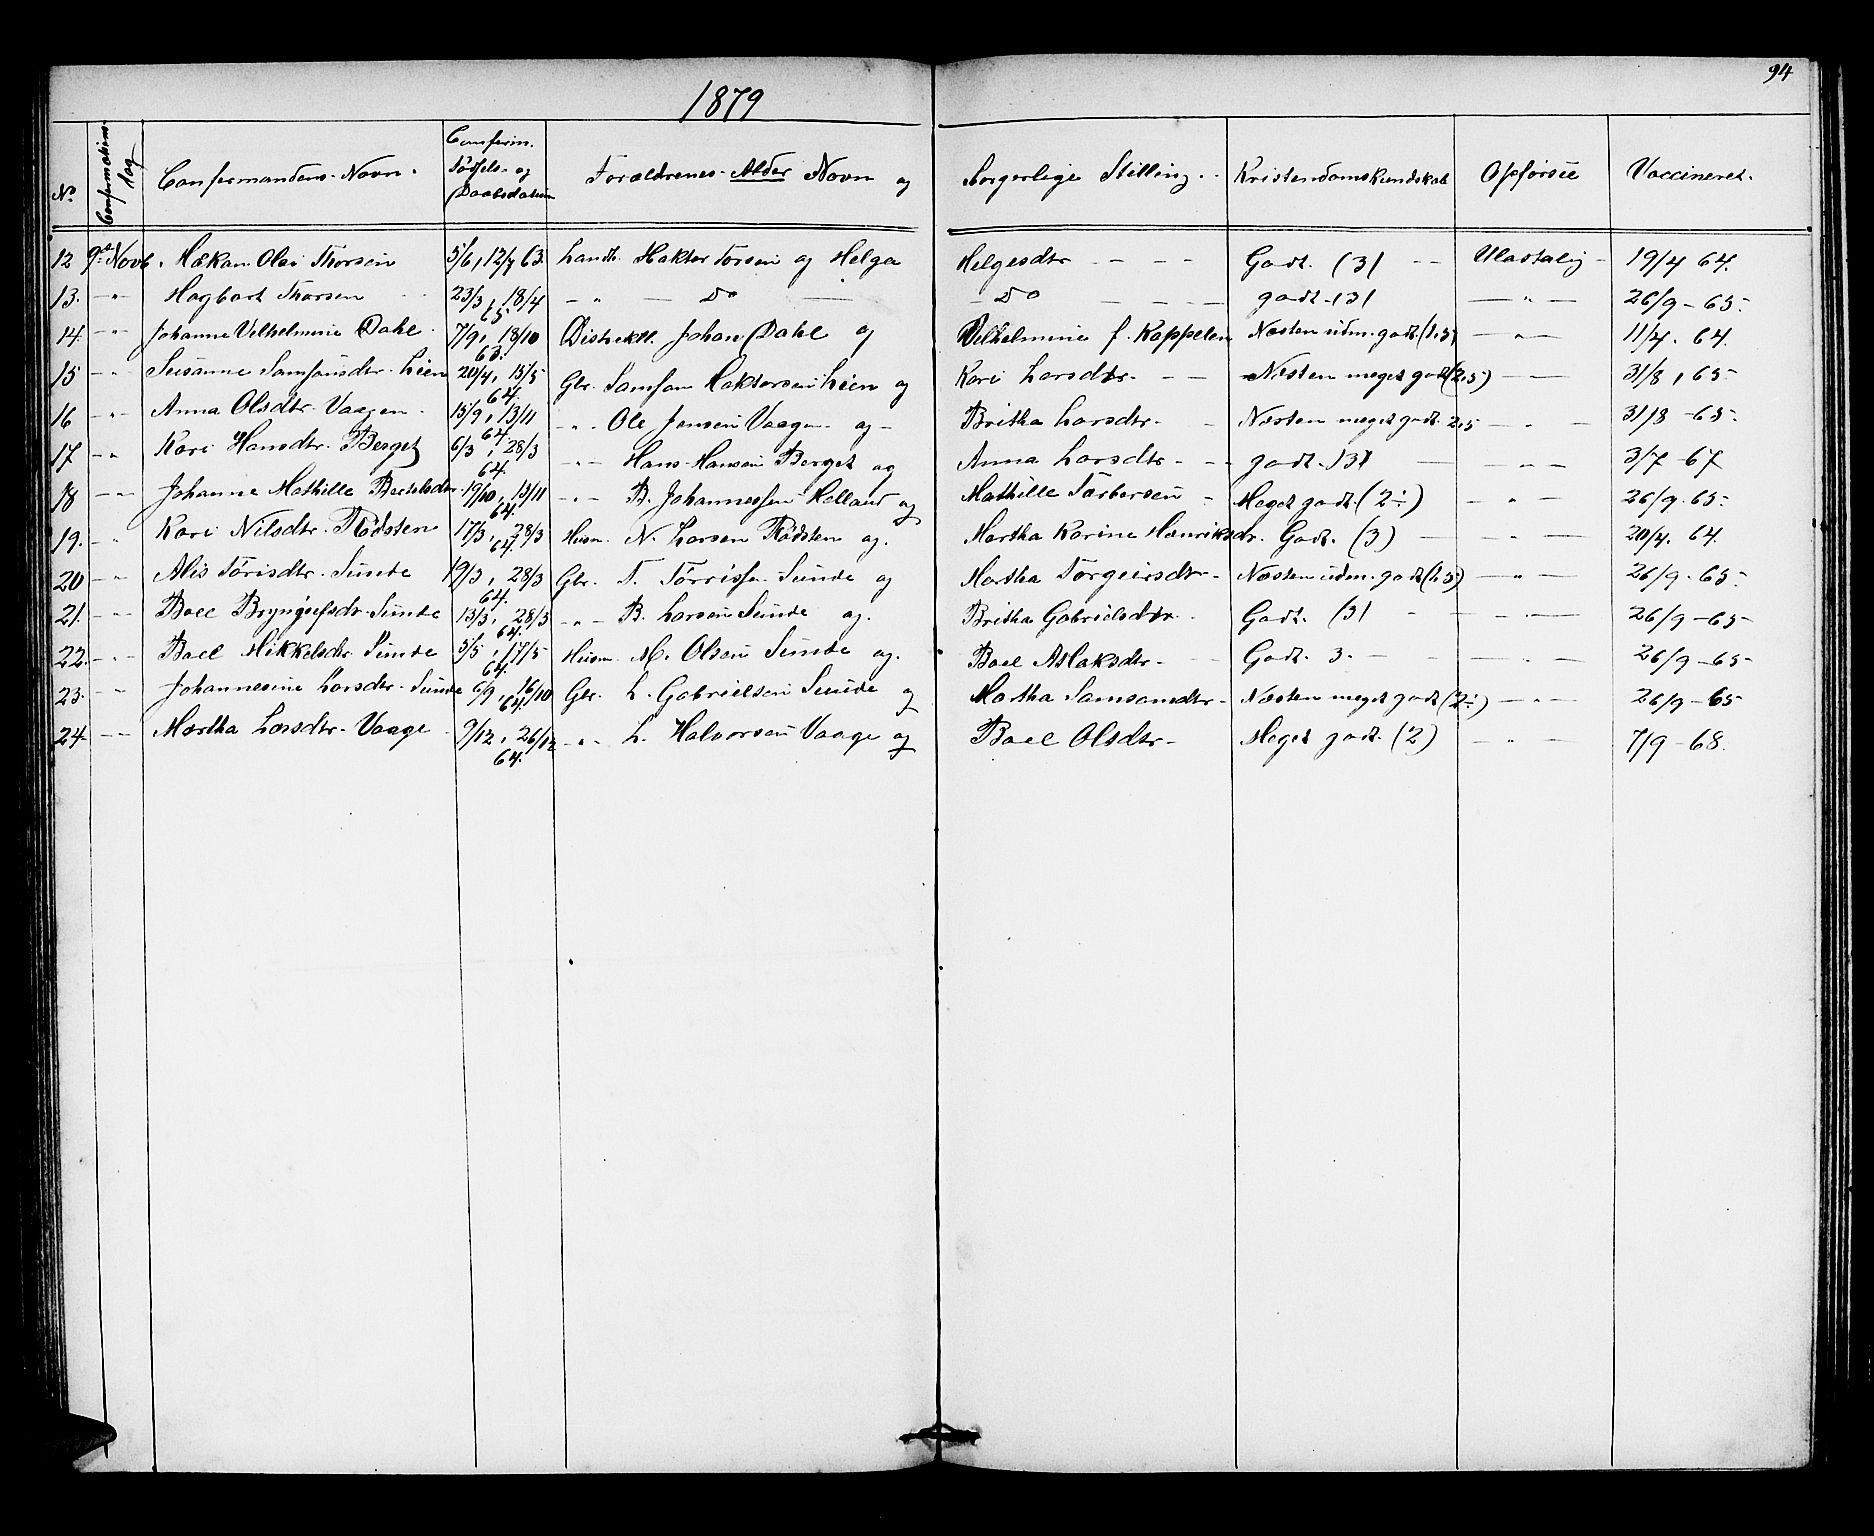 94
1879
No
Confirmations-
dag
Confirmandens Navn.
Confirm.
Fødsels- og
Daabsdatum
Forældrenes Alder Navn og
borgerlige Stilling.
Kristendomskundskab
Opførsel
Vaccineret.
12 9de Novb. Hakan Olai Thorsen 5/6, 12/7 63. Landh. Haktor Torsen og Helga Helgesdtr - - - Godt. (3) - - Ulastelig - 19/4 64.
13. - " - Hagbart Thorsen 23/3, 18/4 65. - " - Do - - Do - - - godt. (3) - " - 26/9 - 65.
14. - " - Johanne Vilhelmine Dahl 7/9, 18/10 63. Distriktl. Johan Dahl og Vilhelmine f. Kappelen Næsten udm. godt. (1,5) - " - 11/4. 64.
15 - " - Susanne Samsonsdtr. Lien 20/4, 15/5 64. Gbr. Samson Haktorsen Lien og Kari Larsdtr. - - Næsten meget godt (2,5) - - 31/8, 65
16 - " - Anna Olsdtr. Vaagen 15/9, 13/11 64. - " - Ole Jansen Vaagen og - Britha Larsdtr. - Næsten meget godt. 2,5 - " - 31/8 - 65.
17 - " - Kari Hansdtr. Berget 6/3, 28/3 64. - " - Hans Hansen Berget og Anna Larsdtr. - - godt. (3) - - " - 3/7 - 67
18 - " - Johanne Mathilde Bertelsdtr 19/10, 13/11 64. - " - B. Johannessen Helland og Mathille Torbersen - Meget godt. (2÷) - " - 26/9. 65.
19. - " - Kari Nilsdtr. Rødsten 17/3, 28/3 64. Husm. N. Larsen Rødsten og. Martha Karine Henriksdr. Godt. (3) - - " - 20/4. 64.
20 - " - Alis Tørisdtr. Sunde 19/3, 28/3 64. Gbr. T. Tørrissen Sunde og Martha Torgeirsdtr. Næsten udm. godt (1,5) - " - 26/9. 65.
21. - " - Boel Bryngelsdr. Sunde 13/3, 28/3 64. - " - B. Larsen Sunde og. Britha Gabrielsdtr. Godt. (3) - - " - 26/9 - 65
22. - " - Boel Mikkelsdtr Sunde 5/5, 17/5 64. Husm. M. Olsen Sunde og. Boel Aslaksdtr. - Godt. 3. - - " - 26/9 - 65
23. - " - Johannesine Larsdtr. Sunde 6/9, 16/10 64. Gbr. L. Gabrielsen Sunde og Martha Samsonsdtr - Næsten meget godt (2÷) - " - 26/9 - 65
24 - " - Martha Larsdtr. Vaage 9/12, 26/12 64. - " - L. Halvorsen Vaage og Boel Olsdtr. - Meget godt. (2) - " - 7/9 - 68.